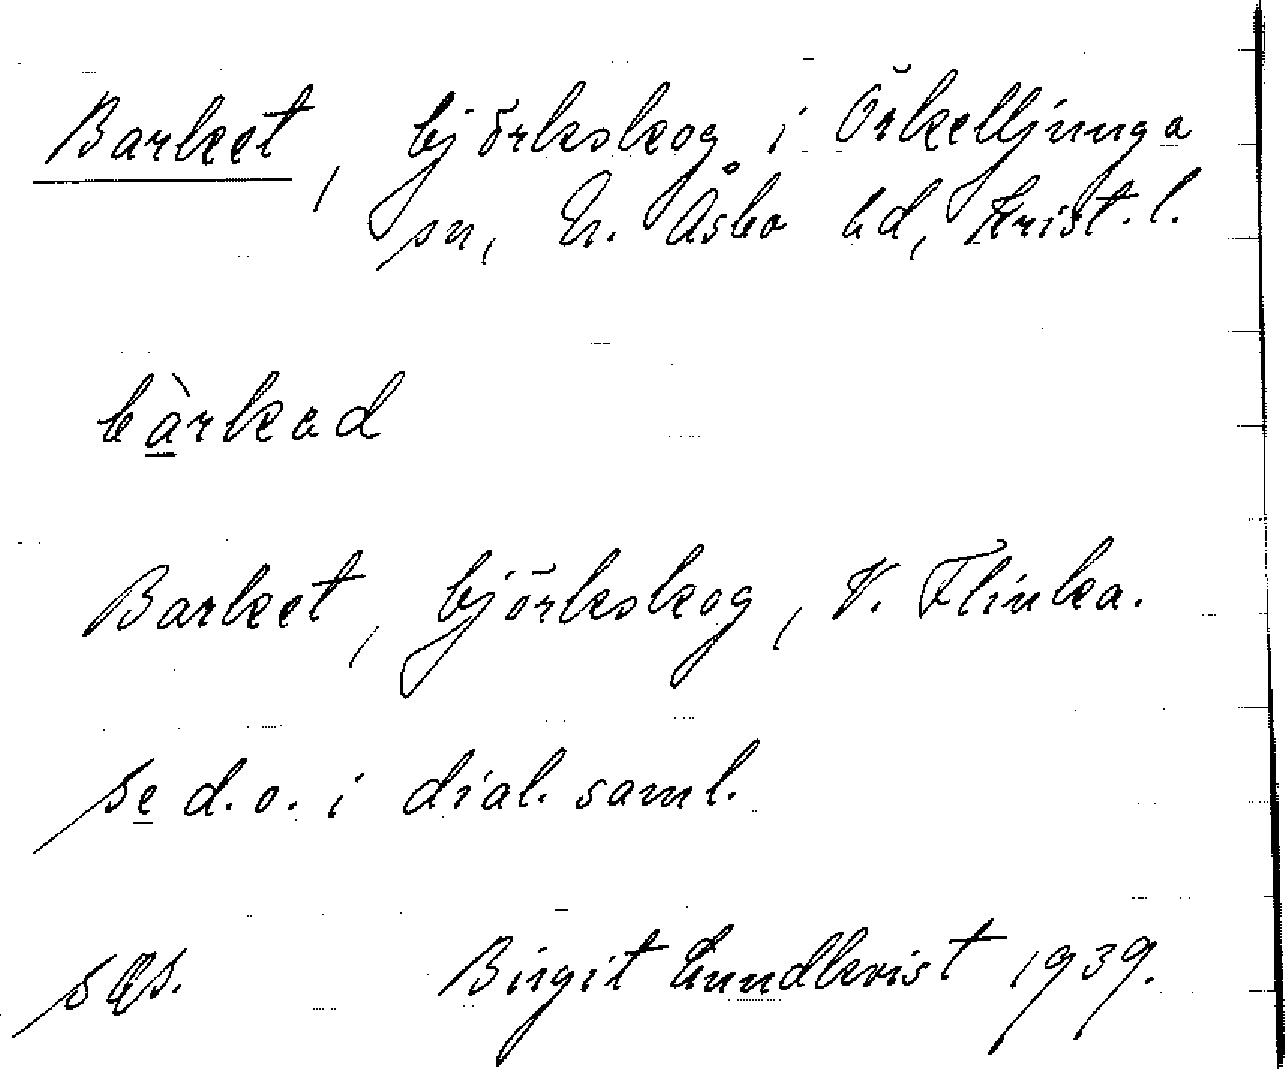 Barket, björkskog i Örkelljunga
sn, N. Åsbo hd, Krist. l.
bàrkad
Barket, björkskog, V. Flinka.
Se d.o. i dial. saml.
Birgit Lundkvist 1939.